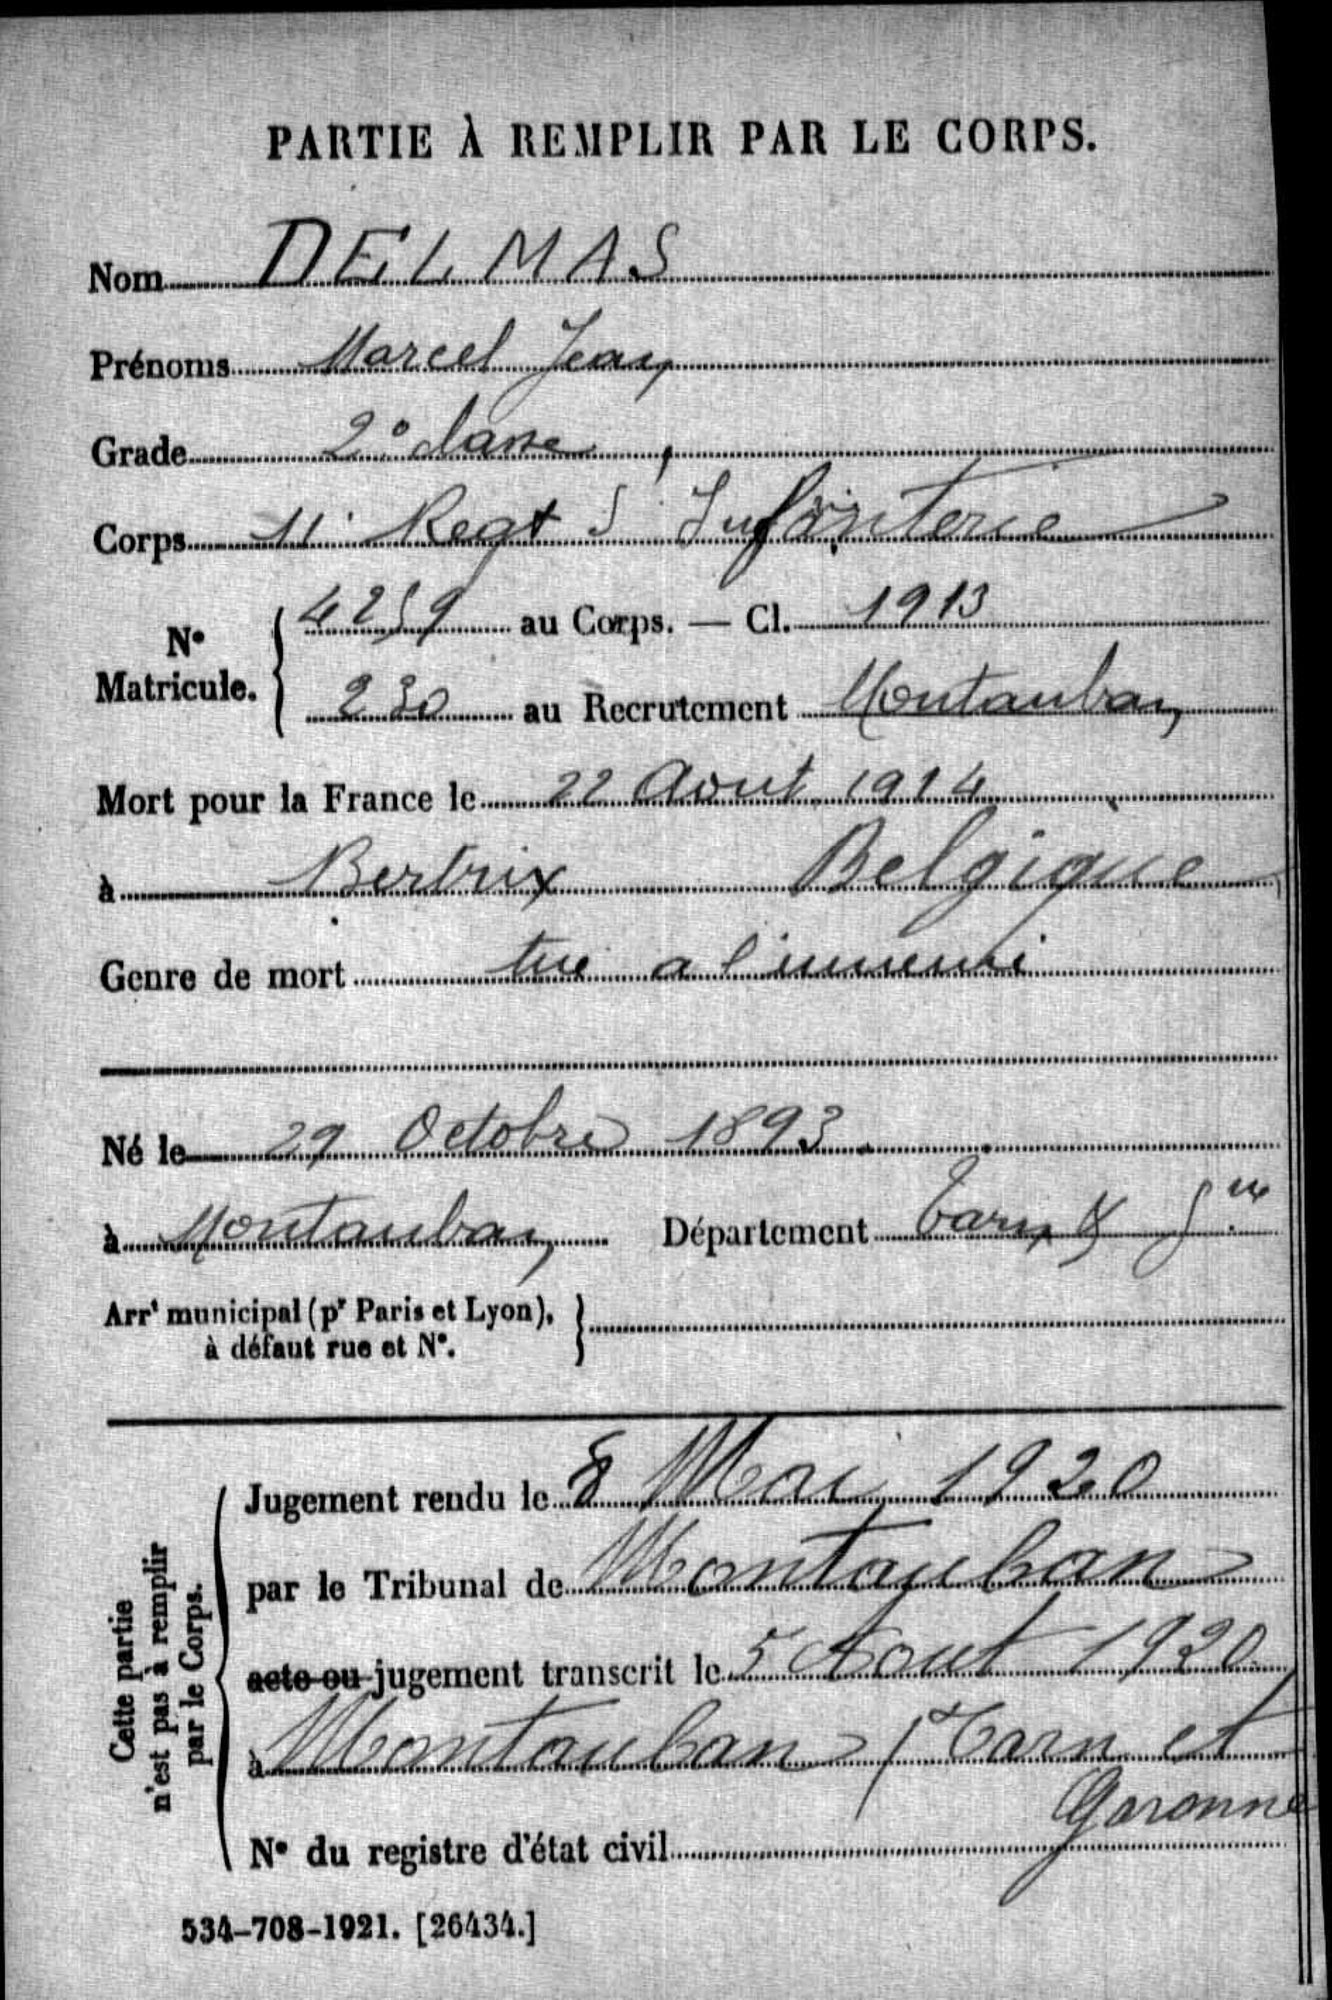 PARTIE À REMPLIR PAR LE CORPS.
Nom DELMAS
Prénoms Marcel Jean
Grade 2e classe
Corps 11e Regt d'Infanterie
N° Matricule. 4259 au Corps. — Cl. 1913
230 au Recrutement Montauban
Mort pour la France le 22 Aout 1914
à Bertrix Belgique
Genre de mort tué a l'ennemi
Né le 29 Octobre 1893
à Montauban Département Tarn & Gne
Arrt municipal (pr Paris et Lyon),
à défaut rue et N°.
Cette partie
n'est pas à remplir
par le Corps.
Jugement rendu le 8 Mai 1920
par le Tribunal de Montauban
acte ou jugement transcrit le 5 Aout 1920
à Montauban (Tarn et
Garonne
N° du registre d'état civil
534-708-1921. [26434.]